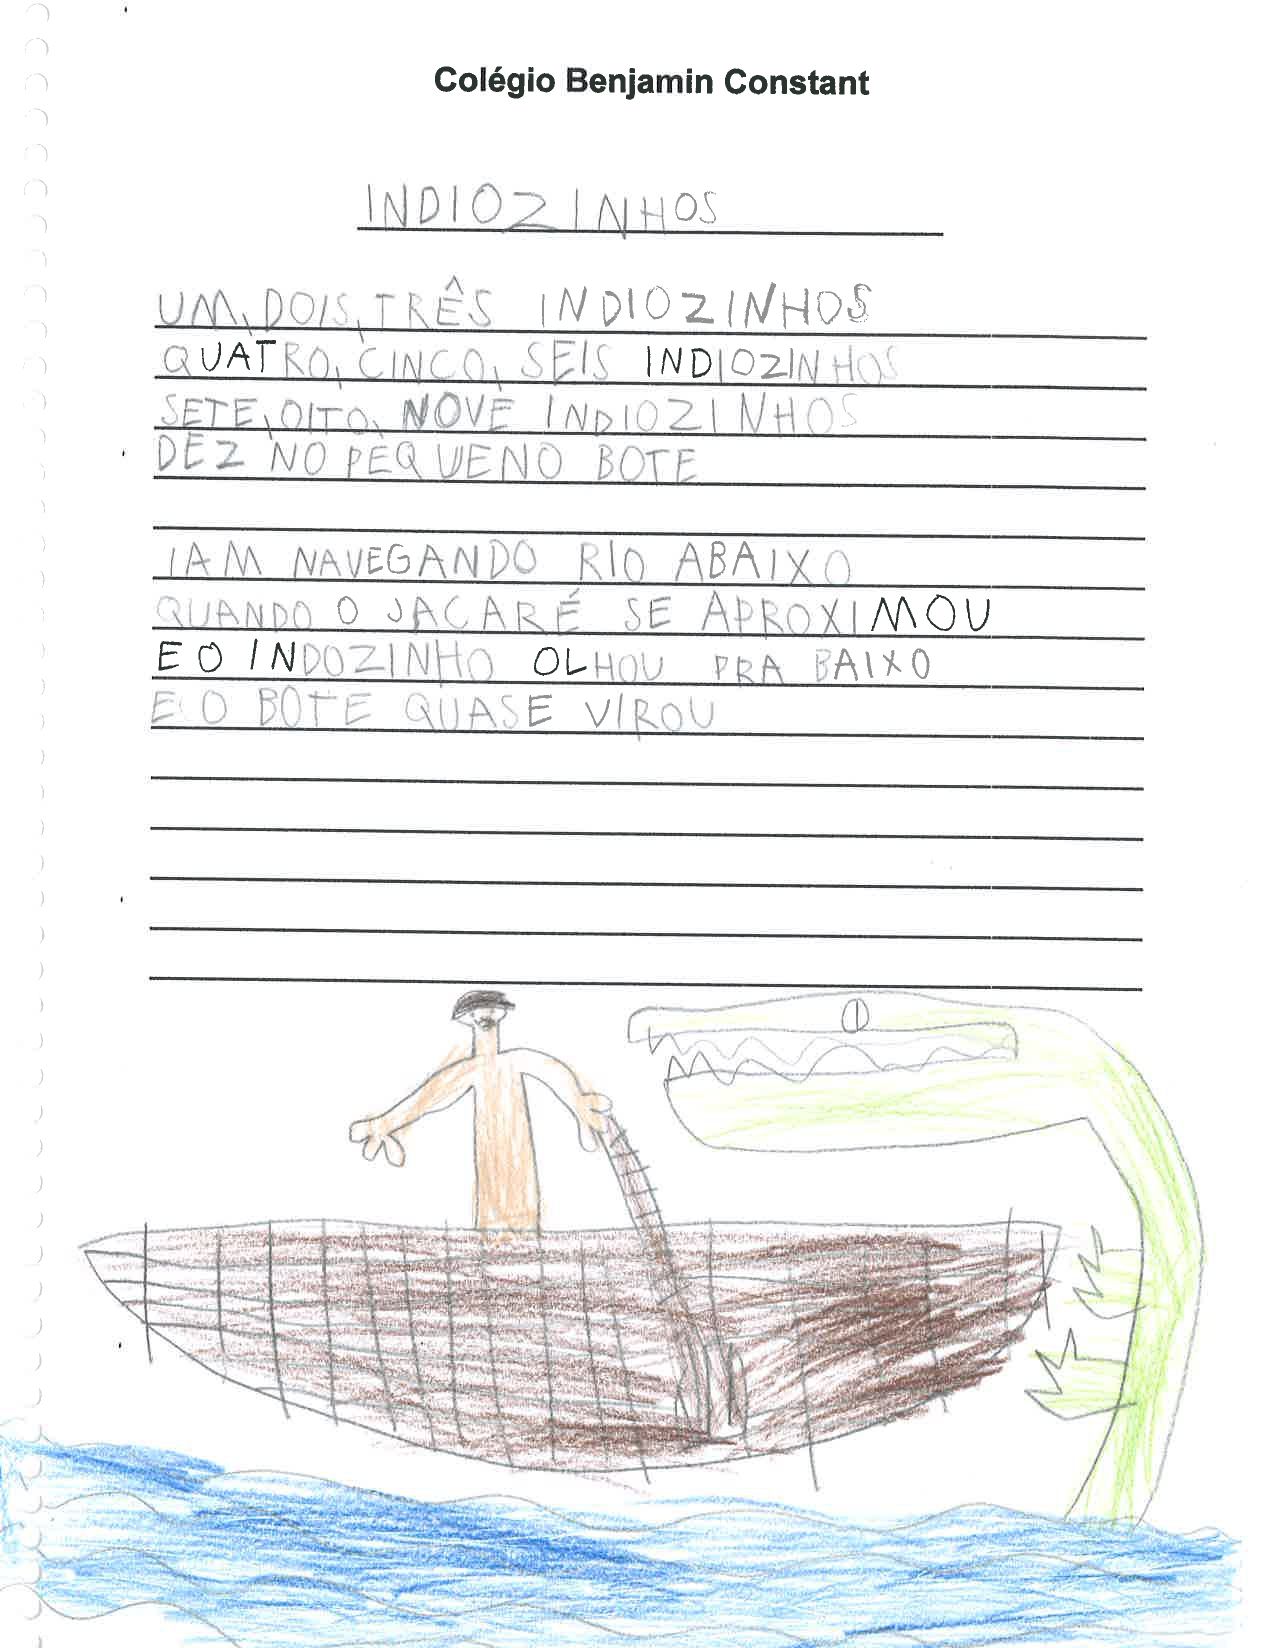 Colégio Benjamin Constant
INDIOZINHOS
UM, DOIS, TRÊS INDIOZINHOS
QUATRO, CINCO, SEIS INDIOZINHOS
SETE, OITO, NOVE INDIOZINHOS
DEZ NO PEQUENO BOTE
IAM NAVEGANDO RIO ABAIXO
QUANDO O JACARÉ SE APROXIMOU
E O INDOZINHO OLHOU PRA BAIXO
E O BOTE QUASE VIROU